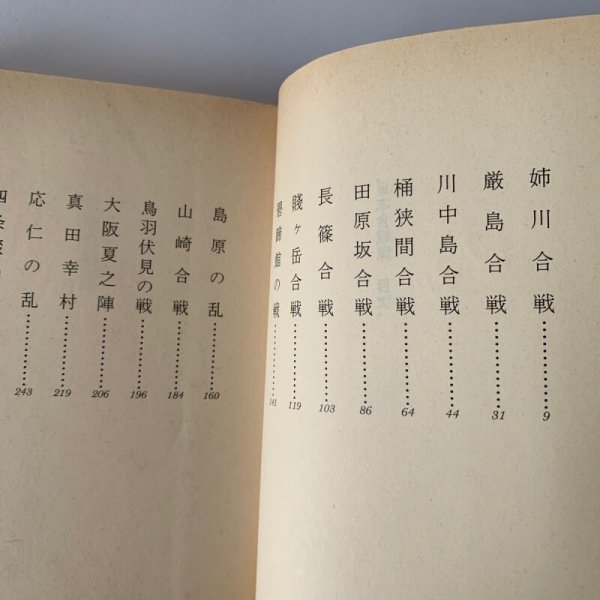 姉川合戦 9
厳島合戦 31
川中島合戦 44
桶狭間合戦 64
田原坂合戦 86
長篠合戦 103
賤ヶ岳合戦 119
碧蹄館の戦 141
島原の乱 160
山崎合戦 184
鳥羽伏見の戦 196
大阪夏之陣 206
真田幸村 219
応仁の乱 243